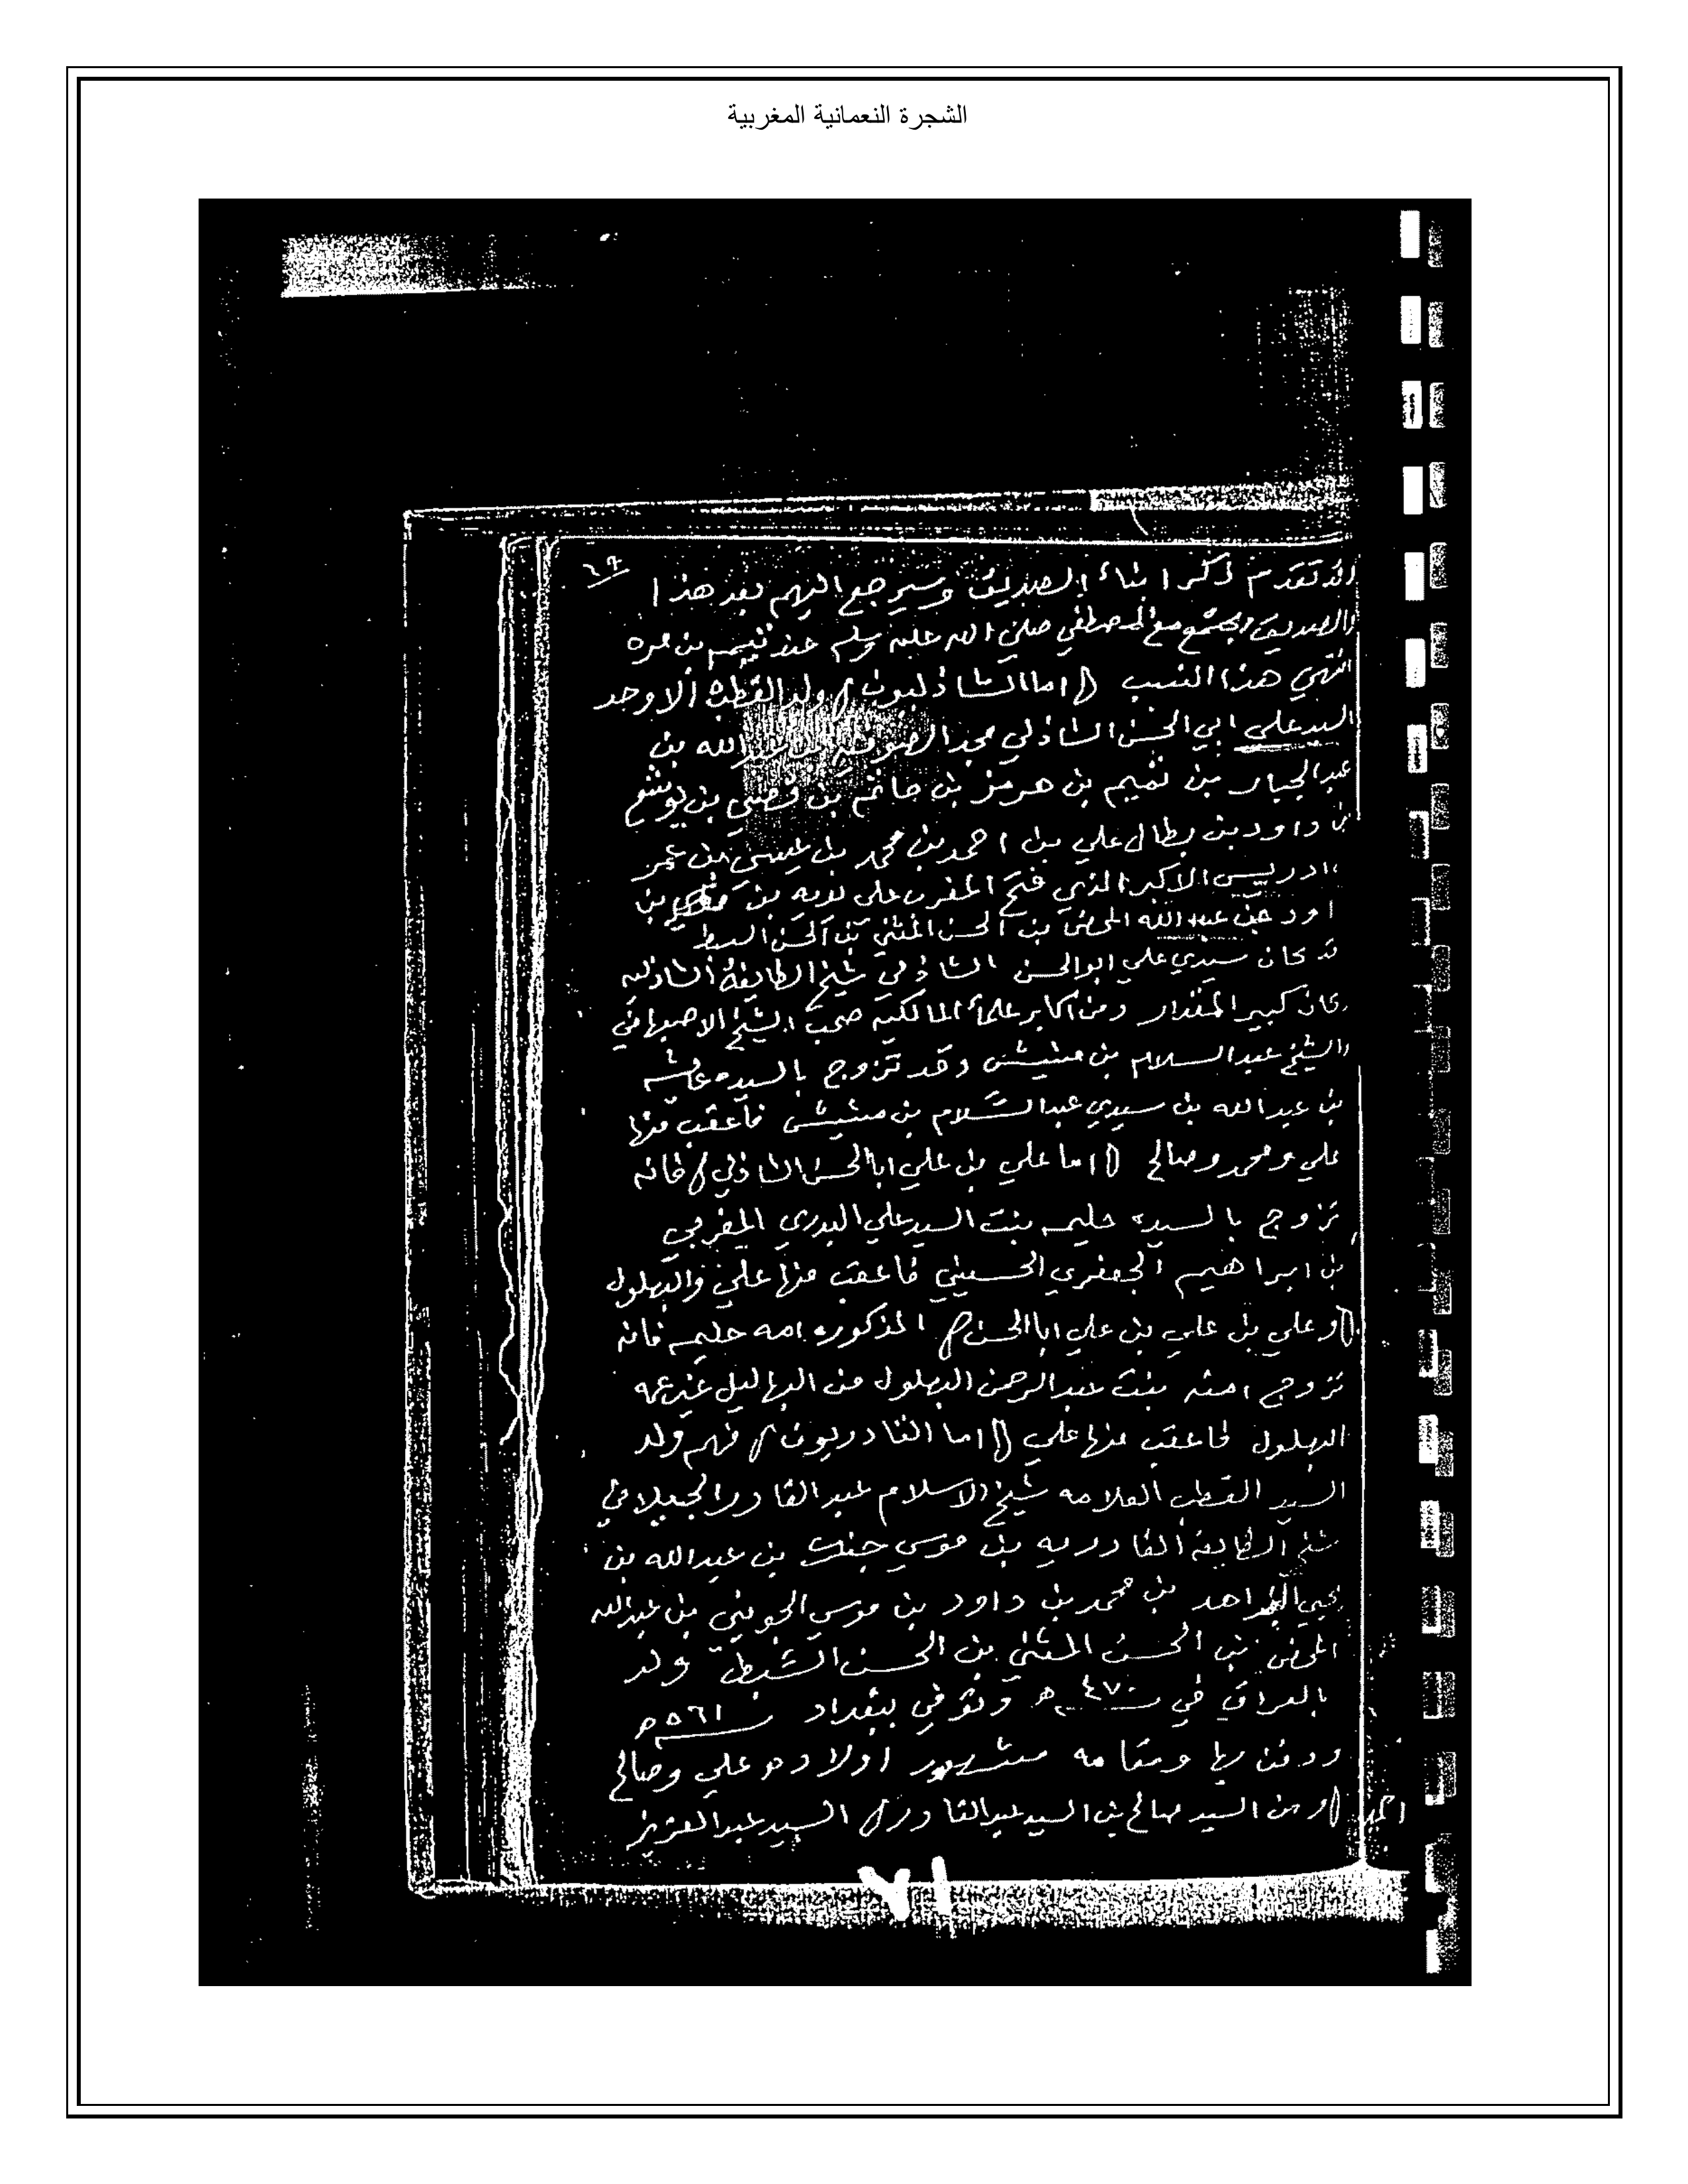 الشجرة النعمانية المغربية
٦٩
تقدم ذكر ابناء الصديق وسيرجع اليهم بعد هذا
الصديق مع المصطفي صلى الله عليه وسلم عند تيم بن مره
هذا النسب اما الشاذليون ولد القطب الاوحد
السيد علي ابي الحسن الشاذلي الله بن
عبد الجبار بن تميم بن هرمز بن حاتم بن قصي بن يوشع
داود بن بطال علي بن احمد بن محمد بن عيسى بن عمر
ادريس الاكبر الذي فتح المغرب علي بن
عبد الله المحض بن الحسن المثني بن الحسن السبط
كان سيدي علي ابو الحسن الشاذلي شيخ الطايفة الشاذليه
كبير المقدار ومن اكابر علماء المالكيه صحب الشيخ الاصبهاني
والشيخ عبد السلام بن مشيش وقد تزوج بالسيده عائشه
بن عبد الله بن سيدي عبد السلام بن مشيش فاعقب منها
علي ومحمد وصالح اما علي بن علي ابا الحسن الشاذلي فانه
تزوج بالسيده حليمه بنت السيد علي البدري المغربي
بن ابراهيم الجعفري الحسيني فاعقب منها علي والبهلول
وعلي بن علي بن علي ابا الحسن المذكور امه حليمه فانه
تزوج امنه بنت عبد الرحمن البهلول من البهاليل غير عمه
البهلول فاعقب منها علي اما القادريون فهم ولد
السيد القطب العلامه شيخ الاسلام عبد القادر الجيلاني
شيخ الطايفة القادريه بن موسي جنك بن عبد الله بن
يحيي الزاهد بن محمد بن داود بن موسي الجويني بن عبد الله
المحض بن الحسن المثني بن الحسن السبط ولد
بالعراق في سنة ٤٧٠ ه وتوفي ببغداد سنة ٥٦١ ه
ودفن بها ومقامه مشهور اولاده علي وصالح
احمد ومن السيد صالح بن السيد عبد القادر السيد عبد العزيز
٧١